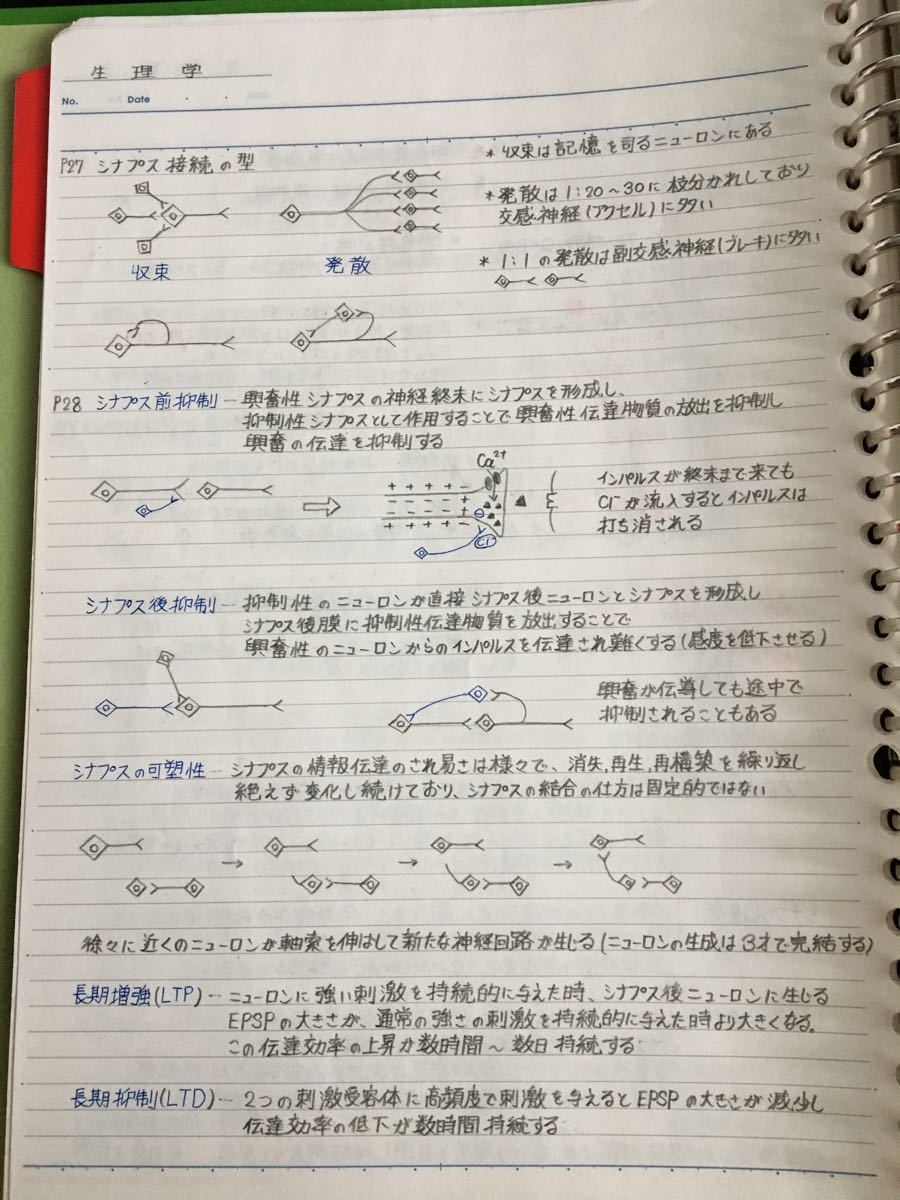 生理学
No. Date
P27 シナプス接続の型
* 収束は記憶を司るニューロンにある
* 発散は1:20～30に枝分かれしており
交感神経(アクセル)に多い
* 1:1の発散は副交感神経(ブレーキ)に多い
収束
発散
P28 シナプス前抑制 … 興奮性シナプスの神経終末にシナプスを形成し、
抑制性シナプスとして作用することで興奮性伝達物質の放出を抑制し
興奮の伝達を抑制する
Ca²⁺
+ + + + −
− − − − +
− − − − +
+ + + + −
⊖
Cl⁻
インパルスが終末まで来ても
Cl⁻が流入するとインパルスは
打ち消される
シナプス後抑制 … 抑制性のニューロンが直接シナプス後ニューロンとシナプスを形成し
シナプス後膜に抑制性伝達物質を放出することで
興奮性のニューロンからのインパルスを伝達され難くする(感度を低下させる)
興奮が伝導しても途中で
抑制されることもある
シナプスの可塑性 … シナプスの情報伝達のされ易さは様々で、消失、再生、再構築を繰り返し
絶えず変化し続けており、シナプスの結合の仕方は固定的ではない
→ → →
徐々に近くのニューロンが軸索を伸ばして新たな神経回路が生じる(ニューロンの生成は3才で完結する)
長期増強(LTP) … ニューロンに強い刺激を持続的に与えた時、シナプス後ニューロンに生じる
EPSPの大きさが、通常の強さの刺激を持続的に与えた時より大きくなる。
この伝達効率の上昇が数時間～数日持続する
長期抑制(LTD) … 2つの刺激受容体に高頻度で刺激を与えるとEPSPの大きさが減少し
伝達効率の低下が数時間持続する